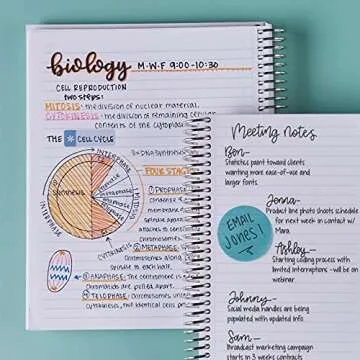 biology M-W-F 9:00-10:30
CELL REPRODUCTION
two steps:
MITOSIS: the division of nuclear material.
CYTOKINESIS: the division of remaining cellular
contents of the cytoplasm
THE CELL CYCLE
INTERPHASE
INTERPHASE
CYTOKINESIS
FOUR STAGE
① PROPHASE:
② METAPHASE:
chromosomes along
③ ANAPHASE: the centromeres
chromatids are pulled apart.
④ TELOPHASE: chromosomes
cytokinesis, but identical cells
Meeting Notes
Ben-
Statistics point toward clients
wanting more ease-of-use and
larger fonts.
Jenna-
Product line photo shoots schedule
for next week in contact w/
Mara.
EMAIL
JONES!
Ashley-
Starting calling process with
limited interruptions - will be on
webinar
Johnny-
Social media handles are being
populated with updated info.
Sam-
Broadcast marketing campaign
starts in 3 weeks